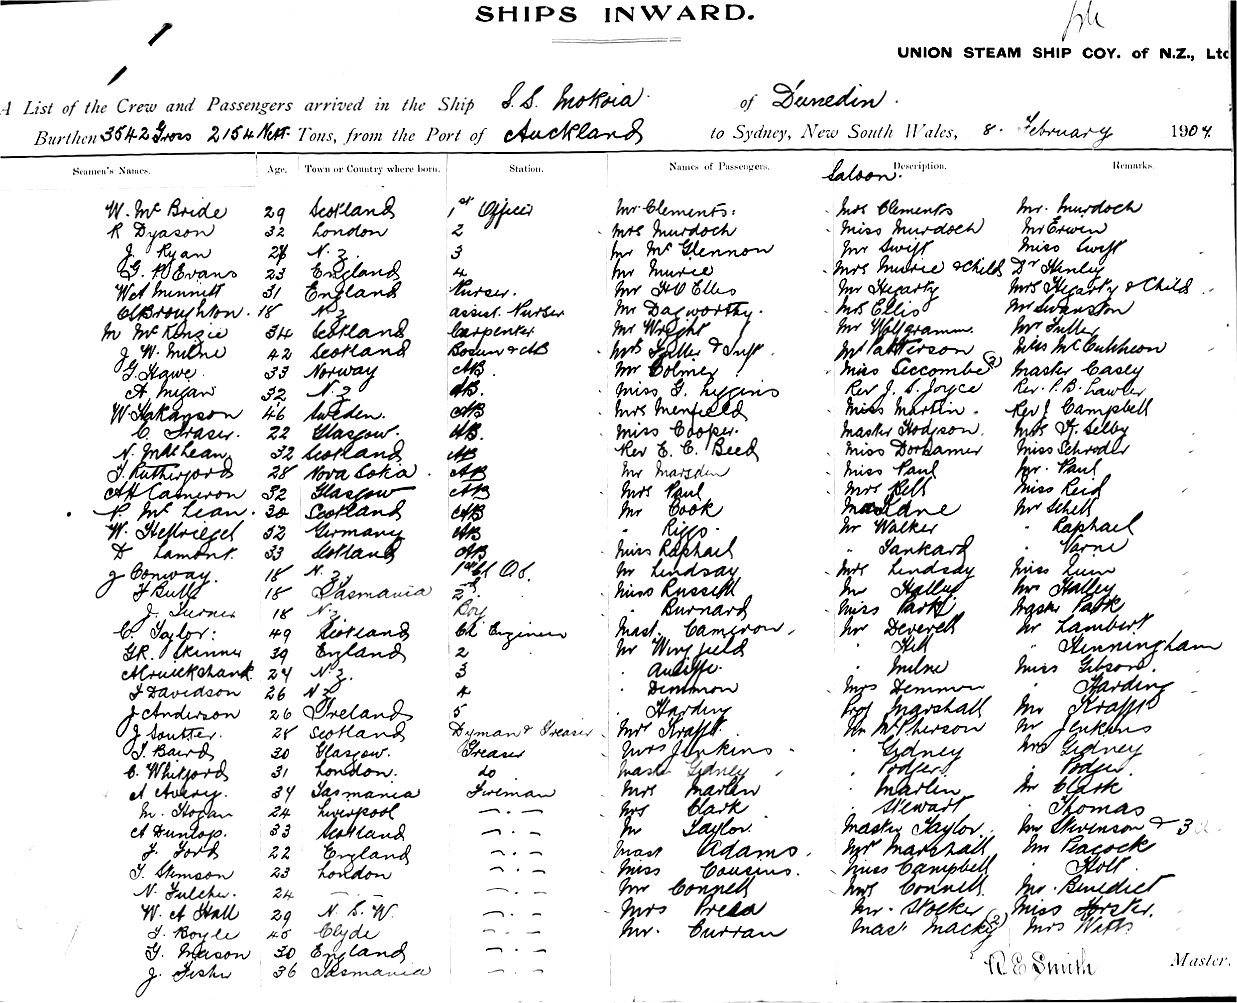 SHIPS INWARD.
UNION STEAM SHIP COY. of N.Z., Ltd
A List of the Crew and Passengers arrived in the Ship S.S. Mokoia of Dunedin.
Burthen 3542 Gross 2154 Nett. Tons, from the Port of Auckland to Sydney, New South Wales, 8. February 1904.
Seamen's Names. Age. Town or Country where born. Station. Names of Passengers. Saloon. Description. Remarks.
W. McBride 29 Scotland 1st Officer Mr Clements. Mrs Clements Mr. Murdoch
R Dyason 32 London 2 Mrs Murdoch Miss Murdoch Mr Erwin
J. Ryan N.Z. 3 Mr McGlennon Mr Swift Miss Swift
G. P. Evans 23 England 4 Mr Murie Mrs Murie & Child Dr Henley
WA Minnitt 31 England Purser. Mr Ellis Mr Hegarty Mrs Hegarty & Child
Broughton. 18 N.Z. assist. Purser Mr Dagworthy. Mrs Ellis Mr Swanston
M McKenzie 34 Scotland Carpenter Mr Wright Mr Mr Fuller
J. W. Milne 42 Scotland Bosun & AB Mrs Fuller & Inft Mr Patterson Miss McCutcheon
G. Hawe 33 Norway AB. Mr Colmer Miss Seccombe (2) Master Casey
A. Megan 32 N.Z AB. Miss G. Liggins Rev J. S. Joyce Rev. P. B. Lawler
W. Hakanson 46 Sweden. AB Mrs Menfield Miss Martin. Rev J Campbell
C. Fraser. 22 Glasgow. AB. Miss Cooper. Master Hodgson. Mrs H. Selby
N. McLean. 32 Scotland AB Rev E. C. Beed Miss Dorhamer Miss Schroder
J. Rutherford 28 Nova Scotia. AB Mr Marsden Miss Paul Mr. Paul
AH Cameron 32 Glasgow AB Mrs Paul Mrs Bell Miss Reid
P. McLean. 30 Scotland AB Mr Cook Lane Mr Schell
W. Hellriegel 52 Germany AB " Riggs. Mr Walker " Raphael
D Lamont. 33 Scotland AB Miss Raphael " Tankard " Varne
J Conway. 18 N.Z. Mr Lindsay Mrs Lindsay Miss Lum
F Butt 18 Tasmania 2nd " Miss Russell Mr Halley Mrs Halley
J. Turner 18 N.Z. Boy " Burnard Miss Park Master Park
C. Taylor. 49 Scotland Ch Engineer Mast. Cameron. Mr Deverell Mr Lambert
GR. Skinner 39 England 2 Mr Wingfield " " Henningham
A Cruickshank 24 N.Z. 3 " " Milne Miss Gibson
J Davidson 26 NZ 4 " Dimmon Mrs Demmon " Harding
J. Anderson 26 Ireland 5 " Harding Prof Marshall Mr Krafft
J. Soutter. 28 Scotland Dyman & Greaser Mrs Krafft Mr McPherson Mr Jenkins
J. Baird 30 Glasgow. Greaser Mrs Jenkins " Gidney Mrs Gidney
C. Whitford 31 London. do Mast Gidney " Podger. " Podger.
A Avery. 34 Tasmania Fireman Mrs Martin " Martin Mr Clark
M. Hogan 24 Liverpool — " — Mrs Clark " Stewart " Thomas
A Dunlop. 33 Scotland — " — Mr Taylor Master Taylor. Mr Stevenson & 3
J. Ford 22 England — " — Mast Adams. Mr Marshall Mr Peacock
J. Stimson 23 London — " — Miss Cousins. Miss Campbell " Holt
N. Fulcher. 24 — " — — " — Mr Connell Mrs Connell. Mr. Benedict
W. A Hall 29 N.S.W. — " — Mrs Preea Mr. Stocker Miss Forster.
J. Boyle 45 Clyde — " — Mr. Curran Mas. Macky (2) Mrs Watts
G. Mason 30 England — " —
J. Fisher 36 Tasmania — " —
R E Smith Master.